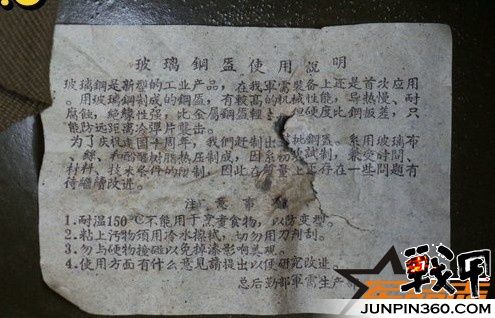 玻璃鋼盔使用說明
玻璃鋼是新型的工业产品,在我軍需裝备上还是首次应用
。用玻璃鋼制成的鋼盔,有較高的机械性能,导热慢、耐
腐蝕,絕緣性强,比金屬鋼盔輕,但硬度比鋼板差,只
能防远距离冷彈片襲击。
为了庆祝建国十周年,我們赶制出这批鋼盔。系用玻璃布
、絲、和酚醛树脂热压制成,因系初次試制,兼受时間、
材料、技术条件的限制,因此在質量上还存在一些問題有
待繼續改进。
注意事項
1.耐温150℃不能用于烹煮食物,以防变型。
2.粘上污物須用冷水擦拭,切勿用刀刮刮。
3.勿与硬物接碰以免掉漆影响美观。
4.使用方面有什么意見請提出以便研究改进。
总后勤部軍需生产
战甲
JUNPIN360.COM